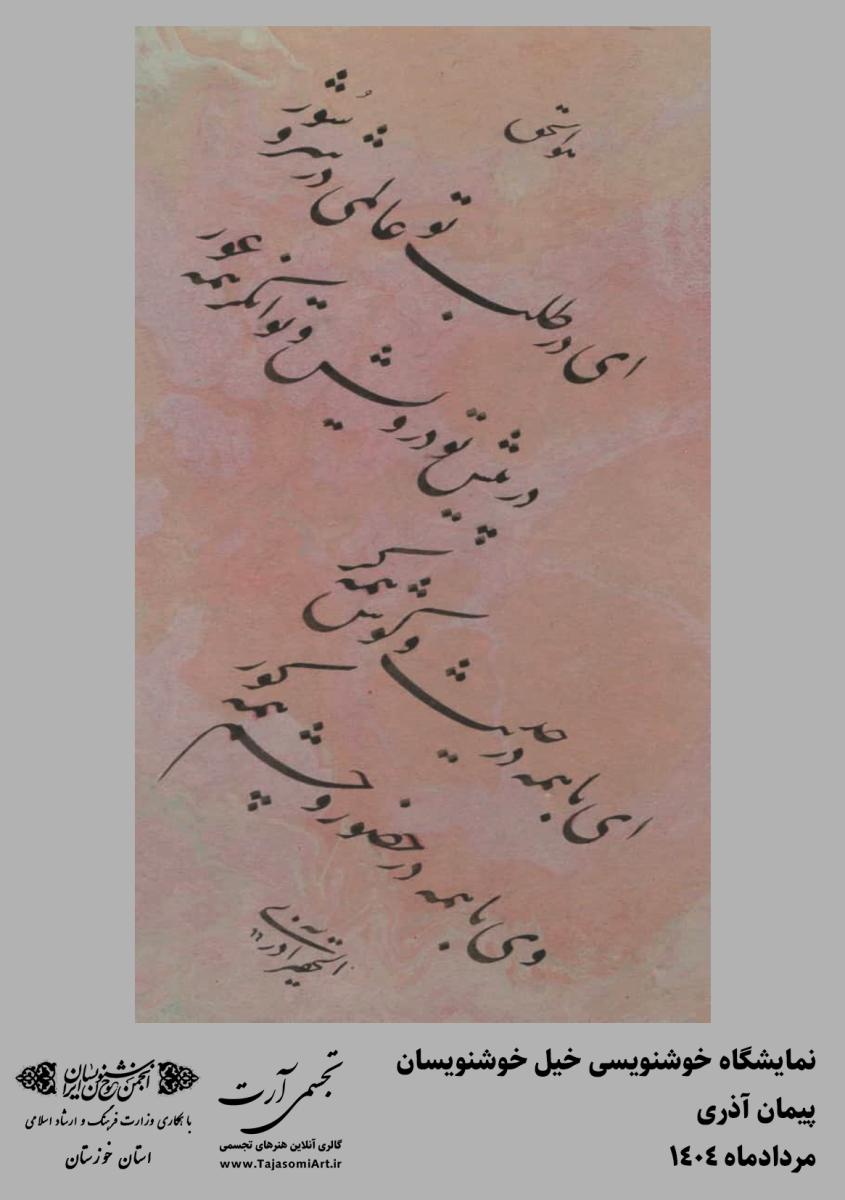 هوالحق
ای در طلب تو عالمی در شر و شور
در پیش تو درویش و توانگر همه عور
ای با همه در حدیث و گوش همه کر
وی با همه در حضور و چشم همه کور
نمایشگاه خوشنویسی خیل خوشنویسان
پیمان آذری
مردادماه ۱۴۰۴
تجسمی آرت
گالری آنلاین هنرهای تجسمی
www.TajasomiArt.ir
انجمن خوشنویسان ایران
با همکاری وزارت فرهنگ و ارشاد اسلامی
استان خوزستان